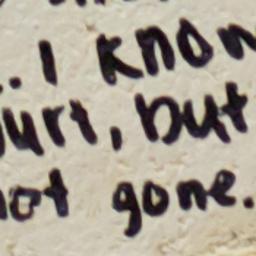 .. I know
hurt, but
not gone.